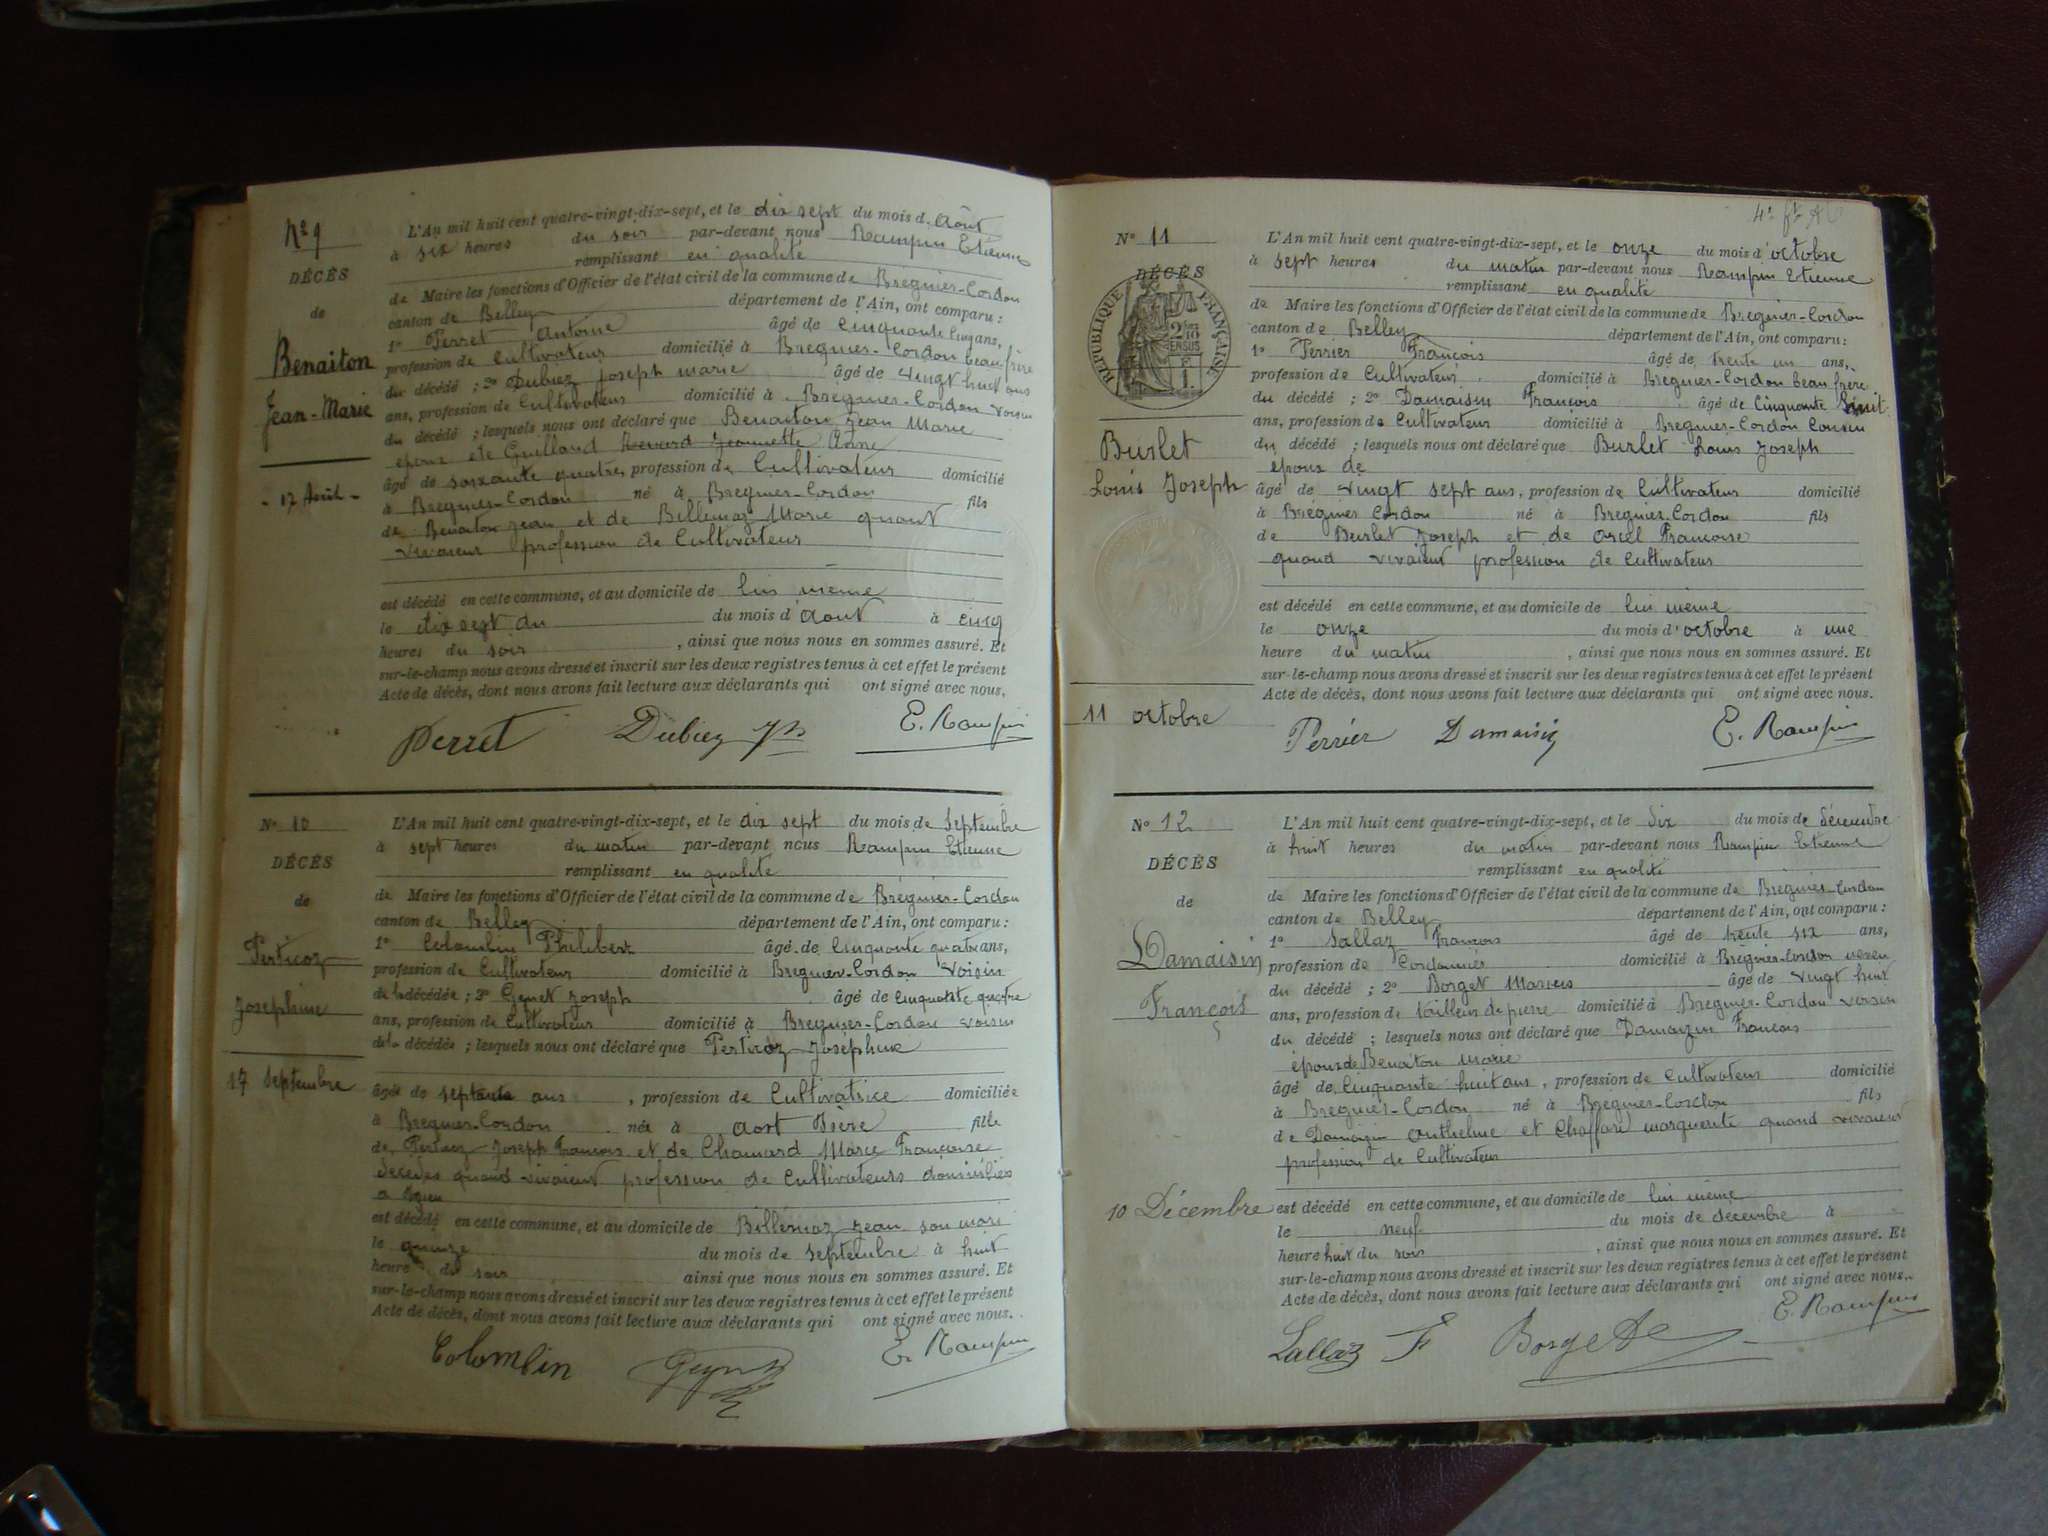 N° 9
DÉCÈS
de
Benaiton
Jean-Marie
- 17 Août -
L'An mil huit cent quatre-vingt-dix-sept, et le dix sept du mois d'Août
à six heures du soir par-devant nous Rampin Etienne
remplissant en qualité
de Maire les fonctions d'Officier de l'état civil de la commune de Bregnier-Cordon
canton de Belley département de l'Ain, ont comparu :
1° Perret Antoine âgé de Cinquante Cinq ans,
profession de Cultivateur domicilié à Bregnier-Cordon beau frère
du décédé ; 2° Dubiez Joseph marie âgé de vingt huit ans
ans, profession de Cultivateur domicilié à Bregnier-Cordon voisin
du décédé ; lesquels nous ont déclaré que Benaiton Jean Marie
époux de Guilland Jeannette
âgé de soixante quatre, profession de Cultivateur domicilié
à Bregnier-Cordon né à Bregnier-Cordon fils
de Benaiton Jean et de Billemaz Marie quand
vivaient profession de Cultivateurs
est décédé en cette commune, et au domicile de lui même
le dix sept du du mois d'Aout à cinq
heures du soir, ainsi que nous nous en sommes assuré. Et
sur-le-champ nous avons dressé et inscrit sur les deux registres tenus à cet effet le présent
Acte de décès, dont nous avons fait lecture aux déclarants qui ont signé avec nous,
Perret Dubiez Jh E. Rampin
N° 10
DÉCÈS
de
Perticoz
Josephine
17 Septembre
L'An mil huit cent quatre-vingt-dix-sept, et le dix sept du mois de Septembre
à sept heures du matin par-devant nous Rampin Etienne
remplissant en qualité
de Maire les fonctions d'Officier de l'état civil de la commune de Brégnier-Cordon
canton de Belley département de l'Ain, ont comparu :
1° Colombin Philibert âgé de Cinquante quatre ans,
profession de Cultivateur domicilié à Bregnier-Cordon Voisin
de la décédée ; 2° Joseph âgé de cinquante quatre
ans, profession de Cultivateur domicilié à Bregnier-Cordon voisin
de la décédée ; lesquels nous ont déclaré que Perticoz Josephine
âgée de septante ans, profession de Cultivatrice domiciliée
à Bregnier-Cordon née à Aost Isère fille
de Perticoz Joseph François et de Chamard Marie Françoise
décédés quand vivaient profession de Cultivateurs domiciliés
a
est décédé en cette commune, et au domicile de Billemaz Jean son mari
le quinze du mois de septembre à huit
heure du soir ainsi que nous nous en sommes assuré. Et
sur-le-champ nous avons dressé et inscrit sur les deux registres tenus à cet effet le présent
Acte de décès, dont nous avons fait lecture aux déclarants qui ont signé avec nous.
Colombin E. Rampin
N° 11
DÉCÈS
RÉPUBLIQUE FRANÇAISE
Burlet
Louis Joseph
11 octobre
L'An mil huit cent quatre-vingt-dix-sept, et le onze du mois d'octobre
à sept heures du matin par-devant nous Rampin Etienne
remplissant en qualité
de Maire les fonctions d'Officier de l'état civil de la commune de Bregnier-Cordon
canton de Belley département de l'Ain, ont comparu :
1° Perrier François âgé de trente un ans,
profession de Cultivateur domicilié à Bregnier-Cordon beau frère
du décédé ; 2° Damaisin François âgé de Cinquante huit
ans, profession de Cultivateur domicilié à Bregnier-Cordon Cousin
du décédé ; lesquels nous ont déclaré que Burlet Louis Joseph
époux de
âgé de vingt sept ans, profession de Cultivateur domicilié
à Bregnier Cordon né à Bregnier-Cordon fils
de Burlet Joseph et de Françoise
quand vivaient profession de Cultivateurs
est décédé en cette commune, et au domicile de lui même
le onze du mois d'octobre à une
heure du matin, ainsi que nous nous en sommes assuré. Et
sur-le-champ nous avons dressé et inscrit sur les deux registres tenus à cet effet le présent
Acte de décès, dont nous avons fait lecture aux déclarants qui ont signé avec nous.
Perrier Damaisin E. Rampin
N° 12
DÉCÈS
de
Damaisin
François
10 Décembre
L'An mil huit cent quatre-vingt-dix-sept, et le dix du mois de décembre
à huit heures du matin par-devant nous Rampin Etienne
remplissant en qualité
de Maire les fonctions d'Officier de l'état civil de la commune de Brégnier-Cordon
canton de Belley département de l'Ain, ont comparu :
1° Lallaz François âgé de trente six ans,
profession de Cordonnier domicilié à Brégnier-Cordon neveu
du décédé ; 2° Borget Marius âgé de vingt huit
ans, profession de tailleur de pierre domicilié à Bregnier-Cordon voisin
du décédé ; lesquels nous ont déclaré que Damaizin François
époux de Benaiton Marie
âgé de Cinquante huit ans, profession de Cultivateur domicilié
à Bregnier-Cordon né à Bregnier-Cordon fils
de Damaizin Anthelme et Chaffard marguerite quand vivaient
profession de Cultivateur
est décédé en cette commune, et au domicile de lui même
le neuf du mois de décembre à
heure huit du soir, ainsi que nous nous en sommes assuré. Et
sur-le-champ nous avons dressé et inscrit sur les deux registres tenus à cet effet le présent
Acte de décès, dont nous avons fait lecture aux déclarants qui ont signé avec nous.
Lallaz F Borget E. Rampin